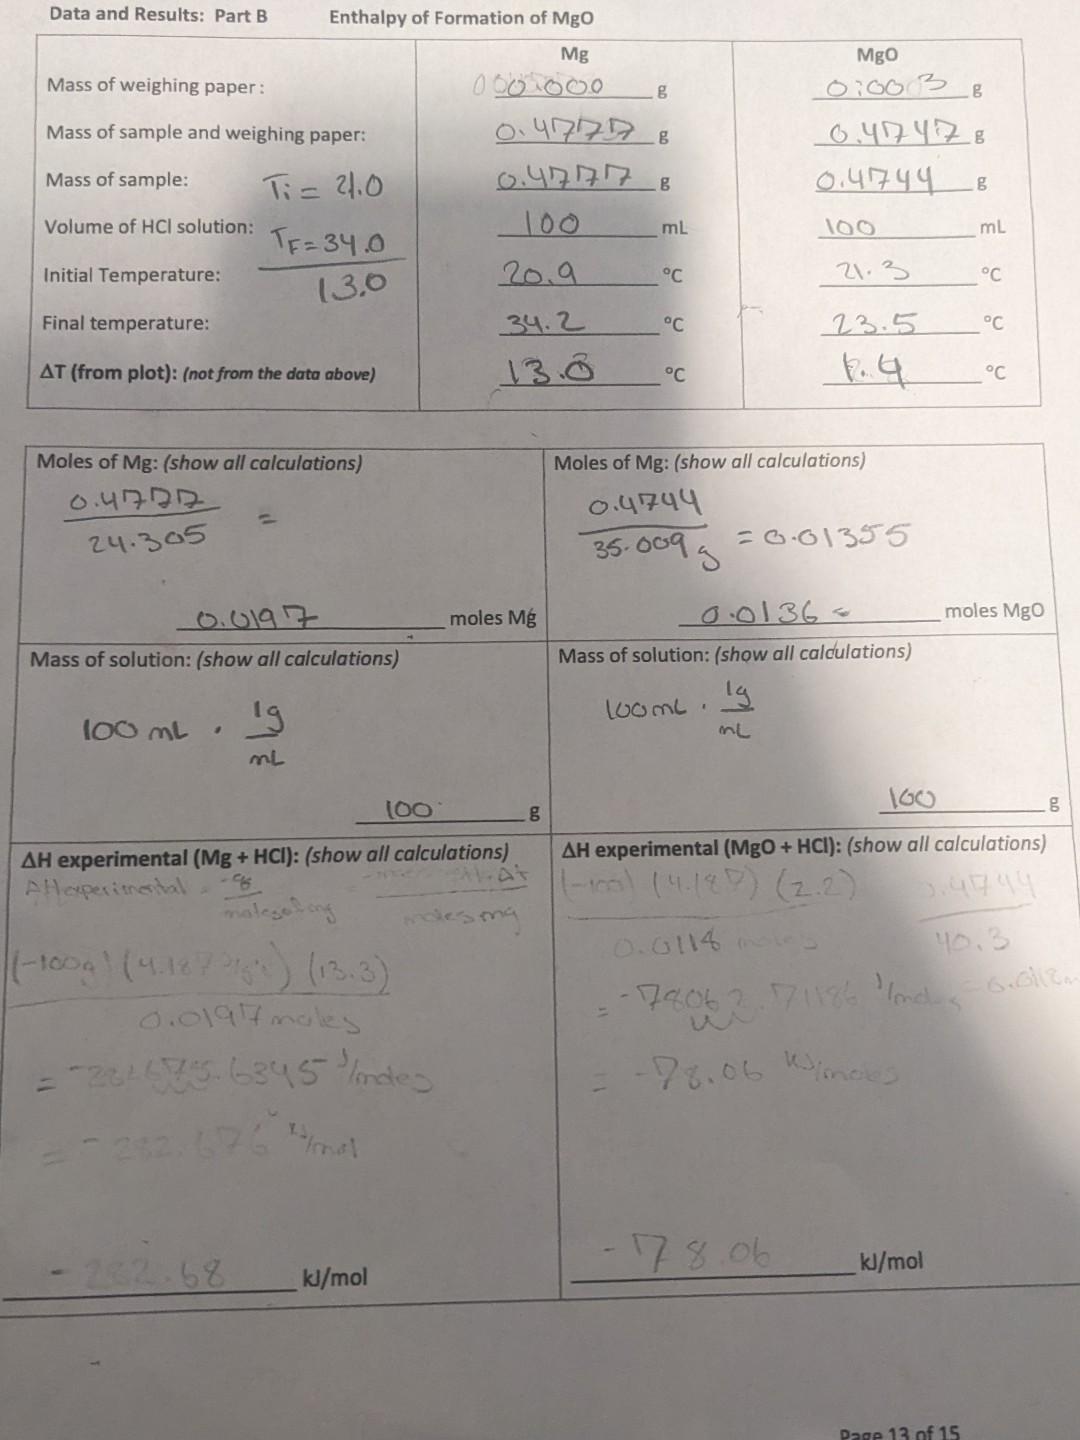 Data and Results: Part B Enthalpy of Formation of MgO
Mg MgO
Mass of weighing paper: g 0.0003 g
Mass of sample and weighing paper: 0.4777 g 0.4747 g
Mass of sample: Ti = 21.0 0.4777 g 0.4744 g
Volume of HCl solution: TF = 34.0 100 mL 100 mL
Initial Temperature: 13.0 20.9 °C 21.3 °C
Final temperature: 34.2 °C 23.5 °C
ΔT (from plot): (not from the data above) 13.0 °C 1.4 °C
Moles of Mg: (show all calculations)
0.4777
24.305 =
0.0197 moles Mg
Moles of Mg: (show all calculations)
0.4744
35.009 g = 0.01355
0.0136 moles MgO
Mass of solution: (show all calculations)
100 mL · 1g
mL
100 g
Mass of solution: (show all calculations)
100 mL · 1g
mL
100 g
ΔH experimental (Mg + HCl): (show all calculations)
ΔH experimental = -q
moles of mg moles mg
(-100g) (4.187 J/g°C) (13.3)
0.0197 moles
J/moles
= -282.676 KJ/mol
-282.68 kJ/mol
ΔH experimental (MgO + HCl): (show all calculations)
(-100) (4.187) (2.2) 0.4744
0.0118 moles 40.3
= -78062.71186 J/moles
= -78.06 KJ/moles
-78.06 kJ/mol
Page 13 of 15